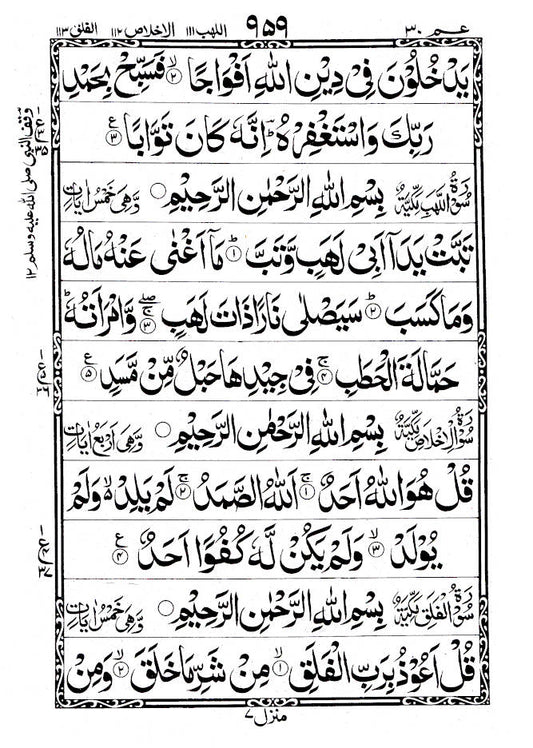 عم ٣٠ ٩٥٩ اللهب ١١١ الاخلاص ١١٢ الفلق ١١٣
يَدْخُلُوْنَ فِيْ دِيْنِ اللّٰهِ اَفْوَاجًا ۙ﴿۲﴾ فَسَبِّحْ بِحَمْدِ
رَبِّكَ وَاسْتَغْفِرْهُ ؕ اِنَّهٗ كَانَ تَوَّابًا ﴿۳﴾ ع
سُوْرَةُ اللَّهَبِ مَكِّيَّةٌ بِسْمِ اللّٰهِ الرَّحْمٰنِ الرَّحِيْمِ ○ وَّهِيَ خَمْسُ اٰيَاتٍ
تَبَّتْ يَدَاۤ اَبِيْ لَهَبٍ وَّتَبَّ ؕ﴿۱﴾ مَاۤ اَغْنٰى عَنْهُ مَالُهٗ
وَمَا كَسَبَ ؕ﴿۲﴾ سَيَصْلٰى نَارًا ذَاتَ لَهَبٍ ۚۖ﴿۳﴾ وَّامْرَاَتُهٗ ؕ
حَمَّالَةَ الْحَطَبِ ۚ﴿۴﴾ فِيْ جِيْدِهَا حَبْلٌ مِّنْ مَّسَدٍ ﴿۵﴾ ع
سُوْرَةُ الْاِخْلَاصِ مَكِّيَّةٌ بِسْمِ اللّٰهِ الرَّحْمٰنِ الرَّحِيْمِ ○ وَّهِيَ اَرْبَعُ اٰيَاتٍ
قُلْ هُوَ اللّٰهُ اَحَدٌ ۚ﴿۱﴾ اَللّٰهُ الصَّمَدُ ۚ﴿۲﴾ لَمْ يَلِدْ ۙ۬ وَلَمْ
يُوْلَدْ ۙ﴿۳﴾ وَلَمْ يَكُنْ لَّهٗ كُفُوًا اَحَدٌ ﴿۴﴾ ع
سُوْرَةُ الْفَلَقِ مَكِّيَّةٌ بِسْمِ اللّٰهِ الرَّحْمٰنِ الرَّحِيْمِ ○ وَّهِيَ خَمْسُ اٰيَاتٍ
قُلْ اَعُوْذُ بِرَبِّ الْفَلَقِ ۙ﴿۱﴾ مِنْ شَرِّ مَا خَلَقَ ۙ﴿۲﴾ وَمِنْ
منزل ٧
وقف النبي صلى الله عليه وسلم ١٢